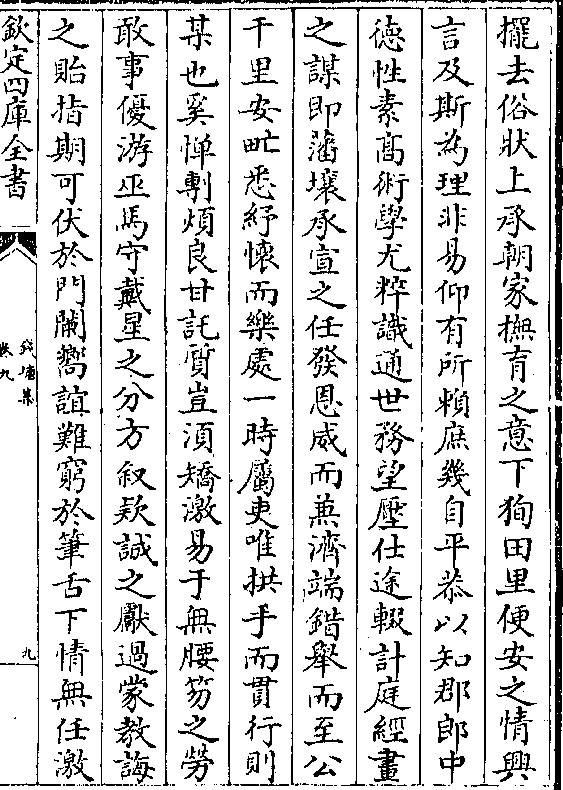 擺去俗狀上承朝家撫育之意下狥田里便安之情興
言及斯為理非易仰有所頼庶幾自平恭以知郡郎中
徳性素高術學尤粹識通世務望壓仕途輟計庭經畫
之謀即藩壤承宣之任發恩威而兼濟端錯舉而至公
千里安甿悉紓懐而樂處一時屬吏唯拱手而貫行則
某也奚憚剸煩良甘託質豈湏矯激易于無腰笏之勞
敢事優游巫馬守戴星之分方叙欵誠之獻過蒙教誨
之貽指期可伏於門闌嚮誼難窮於筆舌下情無任激
欽定四庫全書
錢塘集
卷九
九